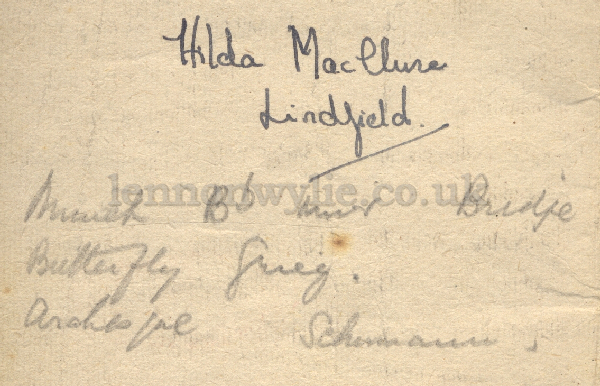 Hilda MacClure
Lindfield.
lennonwylie.co.uk
Minuet Bb minor Bridge
Butterfly Grieg.
Schumann.